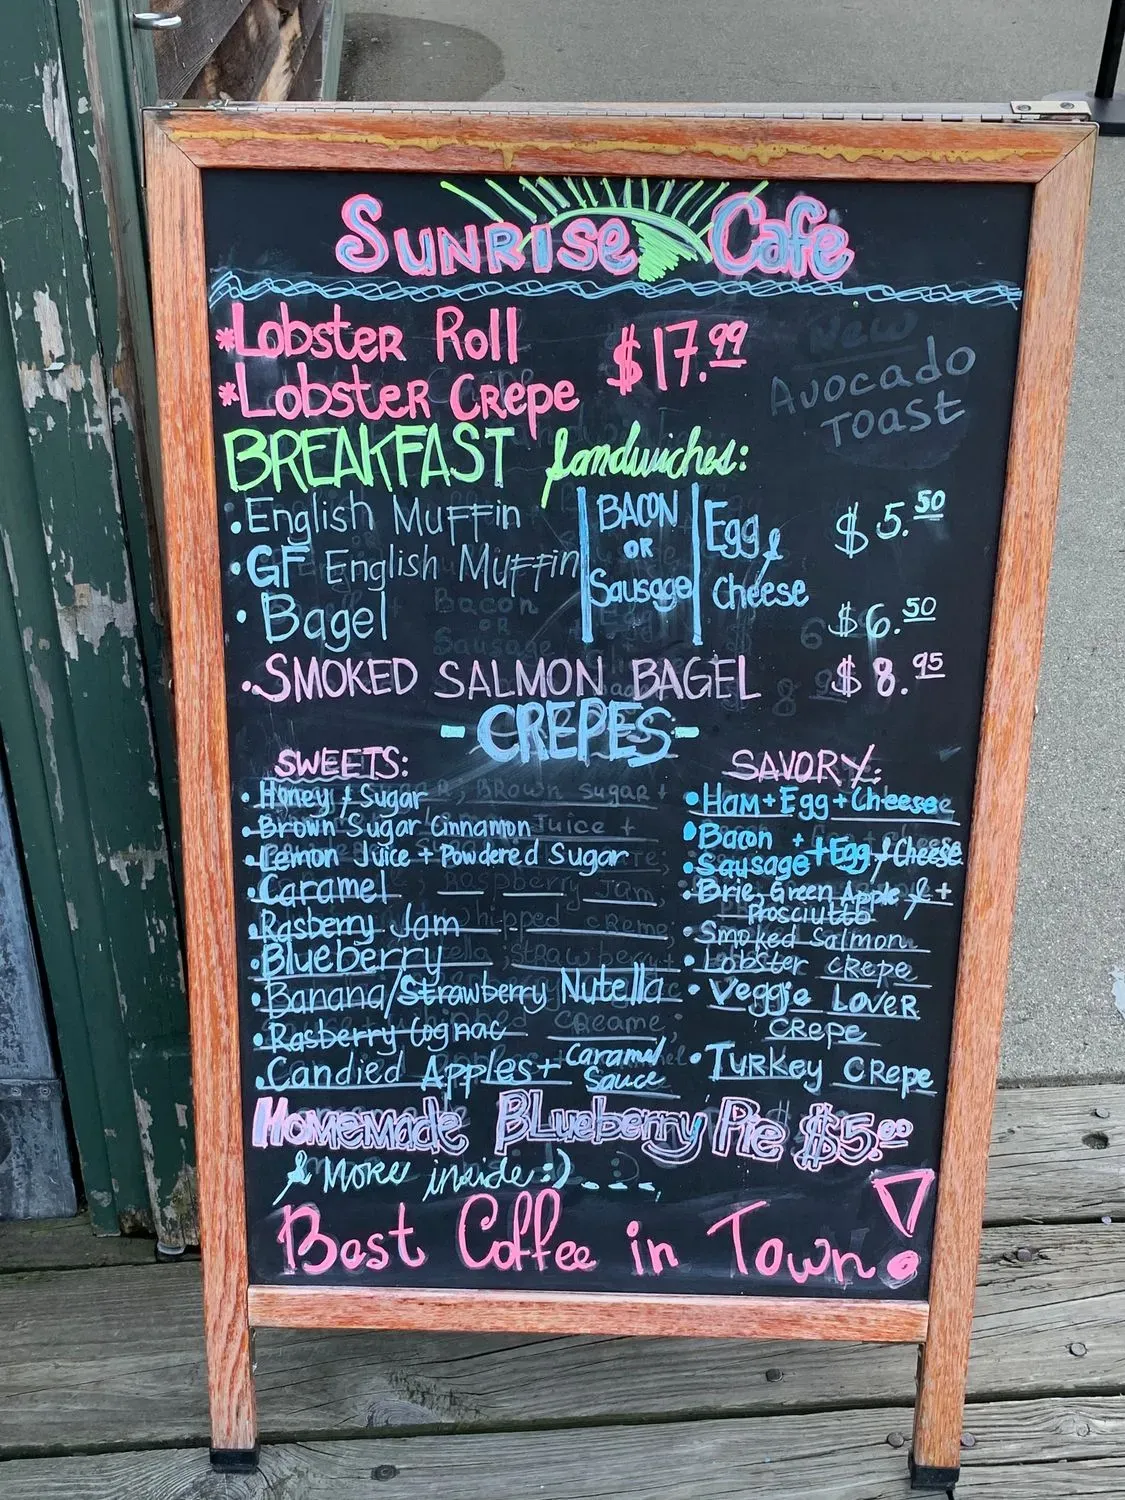 Sunrise Cafe
*Lobster Roll
*Lobster Crepe
$17.99
New
Avocado
Toast
BREAKFAST Sandwiches:
• English Muffin
• GF English Muffin
• Bagel
BACON
OR
Sausage
Egg &
Cheese
$5.50
$6.50
• SMOKED SALMON BAGEL $8.95
- CREPES -
SWEETS:
• Honey + Sugar
• Brown Sugar Cinnamon
• Lemon Juice + Powdered Sugar
• Caramel
• Rasberry Jam
• Blueberry
• Banana/Strawberry Nutella
• Rasberry Cognac
• Candied Apples + Caramel
Sauce
SAVORY:
• Ham + Egg + Cheese
• Bacon +
• Sausage + Egg & Cheese
• Brie, Green Apple & +
Prosciutto
• Smoked Salmon
• Lobster Crepe
• Veggie Lover
Crepe
• Turkey Crepe
Homemade Blueberry Pie $5.00
& More inside :) - - -
Best Coffee in Town!